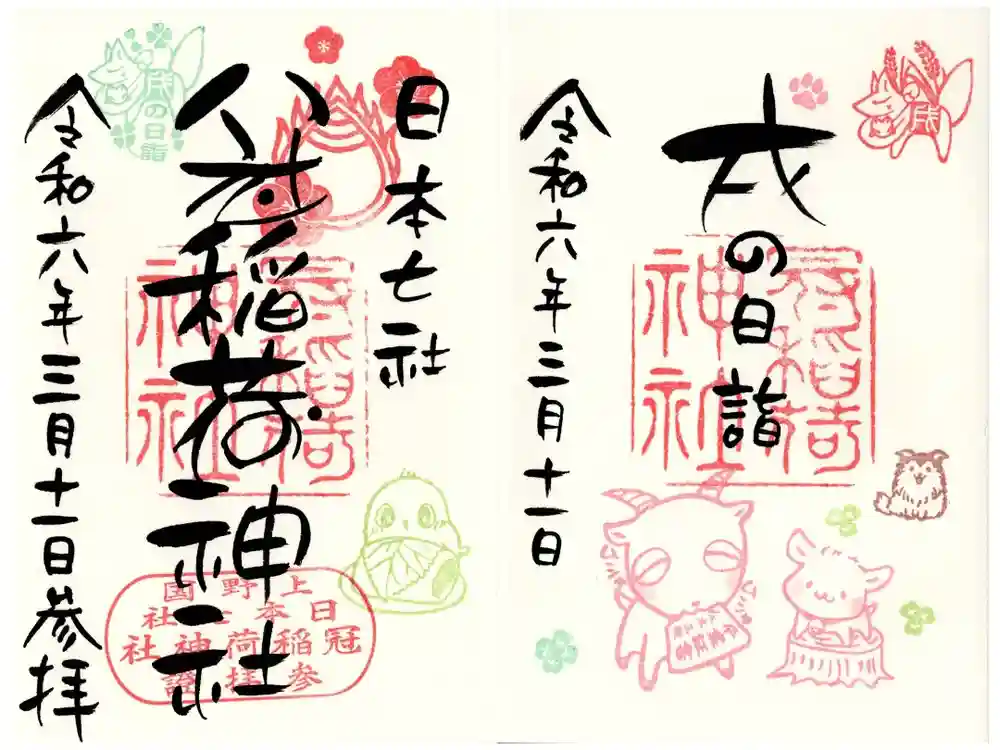 戌
戌の日詣
冠稲荷
神社
令和六年三月十一日
日本七社
冠稲荷神社
冠稲荷
神社
上野国
日本七社
冠稲荷神社
参拝證
戌の日詣
令和六年三月十一日参拝